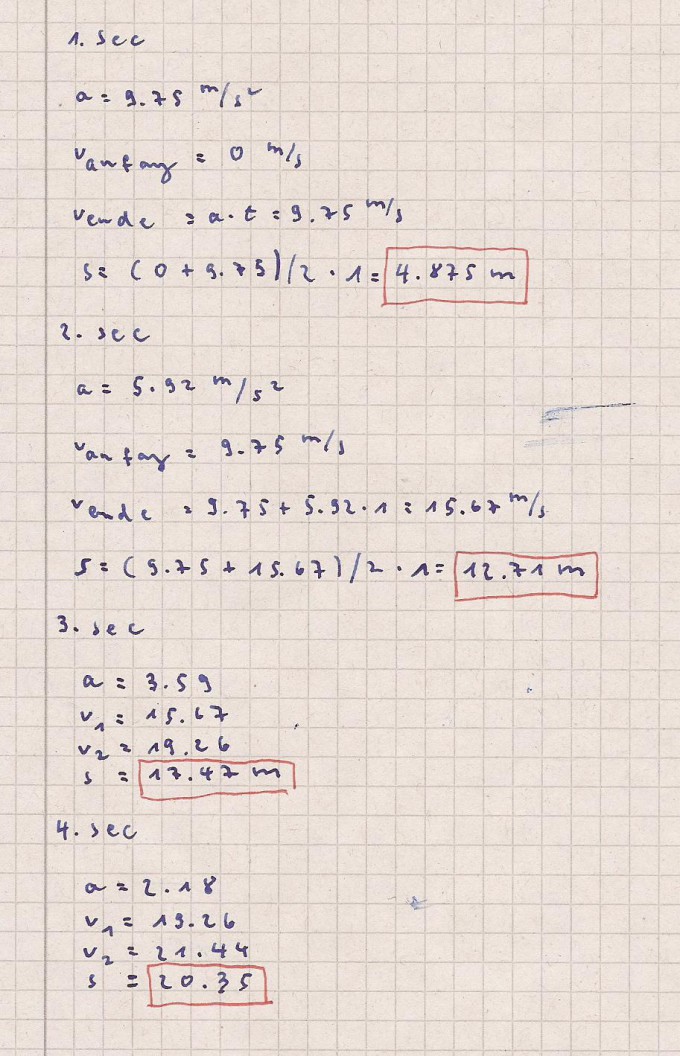 1. sec
a = 9.75 m/s²
vanfang = 0 m/s
vende = a·t = 9.75 m/s
s = (0 + 9.75)/2 · 1 = 4.875 m
2. sec
a = 5.92 m/s²
vanfang = 9.75 m/s
vende = 9.75 + 5.92·1 = 15.67 m/s
s = (9.75 + 15.67)/2 · 1 = 12.71 m
3. sec
a = 3.59
v₁ = 15.67
v₂ = 19.26
s = 17.47 m
4. sec
a = 2.18
v₁ = 19.26
v₂ = 21.44
s = 20.35